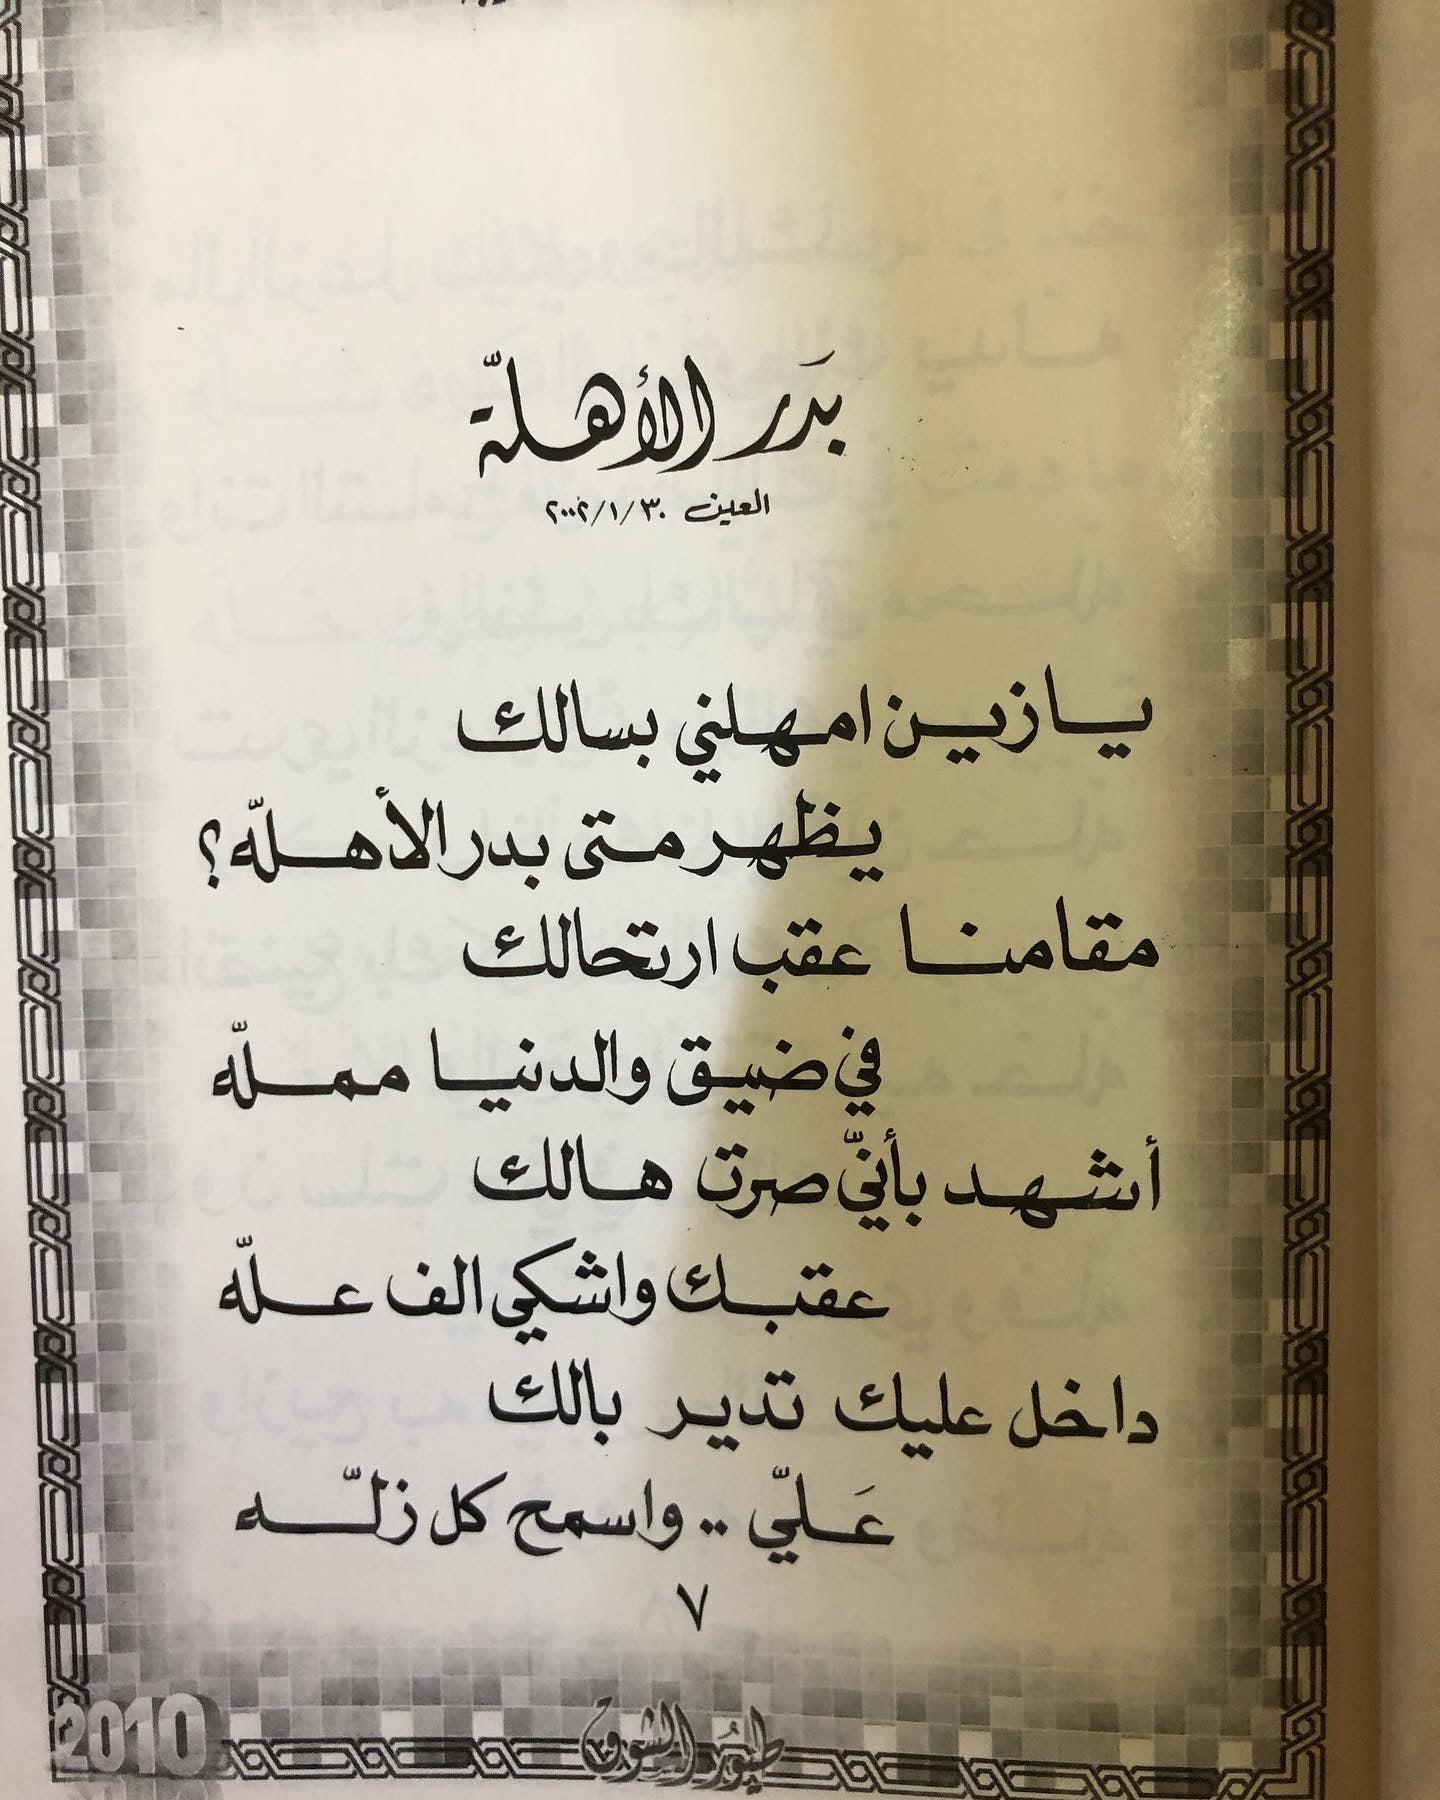 بَدر الأهلّة
العين ٣٠/١/٢٠٠٢
يا زين امهلني بسالك
يظهر متى بدر الأهلّه؟
مقامنا عقب ارتحالك
في ضيق والدنيا مملّه
أشهد بأنّي صرت هالك
عقبك واشكي الف علّه
داخل عليك تدير بالك
عَليّ .. واسمح كل زلّه
٧
طيور الشوق
2010